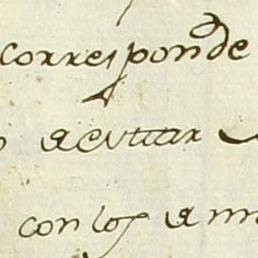 corresponde
aevitar
con los ani